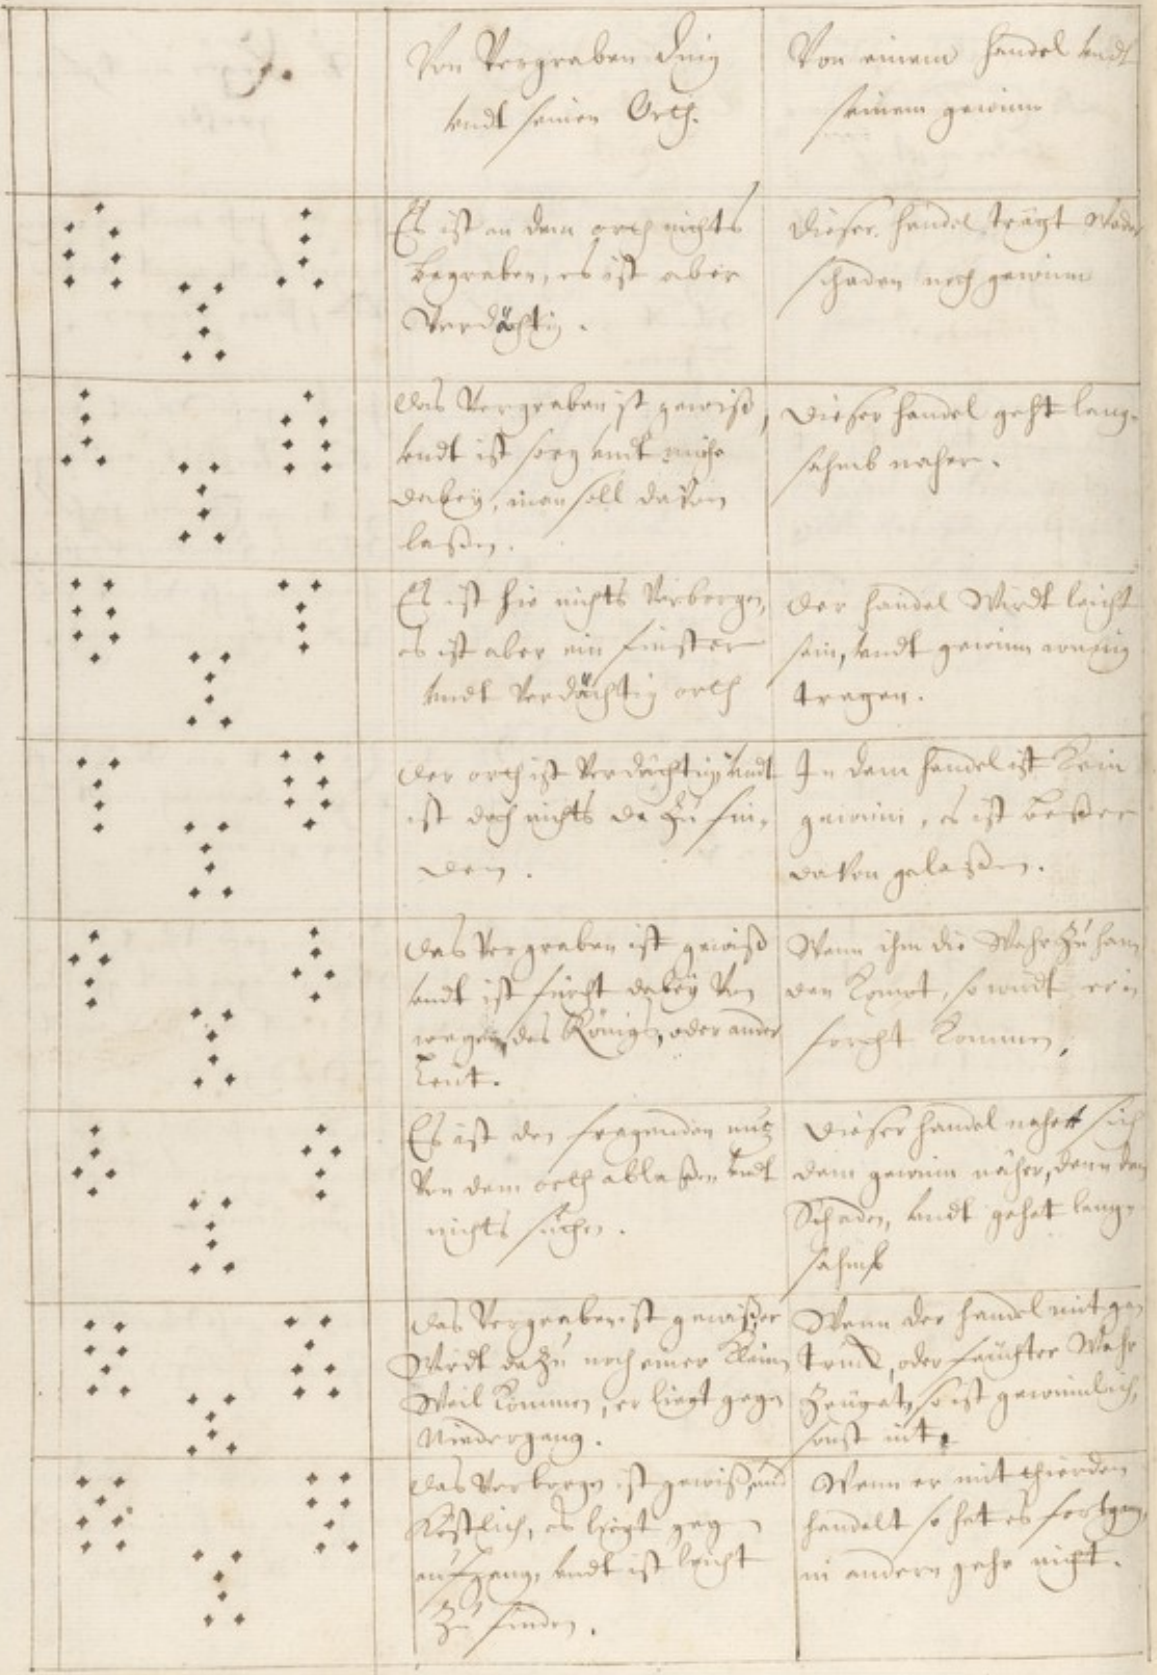 9.
Von Vergraben Ding
undt seinen Orth.
Von einem handel undt
seinem gewinn
Es ist an dem orth nichts
begraben, es ist aber
Verdächtig.
Dieser handel trägt Weder
schaden noch gewinn
Das Vergraben ist gewiß,
undt ist sorg undt mühe
dabey, man soll davon
laßen.
Dieser handel geht lang-
sahmb naher.
Es ist hie nichts Verborgen,
es ist aber ein finster
undt Verdächtig orth
Der handel Wirdt leicht
sein, undt gewinn wenig
tragen.
Der orth ist Verdächtig, undt
ist doch nichts da Zu fin-
den.
In dem handel ist kein
gewinn, es ist beßer
davon gelaßen.
Das Vergraben ist gewiß
undt ist furcht dabey Von
wegen des Königs, oder ander
Leut.
Wenn ihm die Wahr Zu han
den kompt, so wirdt er in
forcht kommen,
Es ist den fragenden nutz
Von dem orth ablaßen undt
nichts suchen.
Dieser handel nahet sich
dem gewinn näher, denn dem
Schaden, undt gehet lang-
sahmb
Das Vergraben ist gewiß, er
Wirdt da Zu noch einer kleinen
Weil kommen, er liegt gegen
Niedergang.
Wenn der handel mit ge
treid, oder feuchter Wahr
so ist gewinnlich,
sonst nit.
Das Verborgen ist gewiß, und
Köstlich, es liegt gegen
auffgang, undt ist leicht
Zu finden.
Wenn er mit thierden
handelt so hat es fortgang,
in andern gehe nicht.